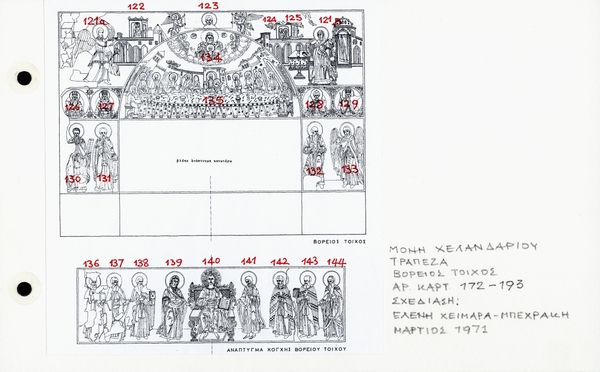 122 123
121α 124 125 121β
134
135
126 127 128 129
βλέπε ἀνάπτυγμα κατωτέρω
130 131 132 133
ΒΟΡΕΙΟΣ ΤΟΙΧΟΣ
136 137 138 139 140 141 142 143 144
ΑΝΑΠΤΥΓΜΑ ΚΟΓΧΗΣ ΒΟΡΕΙΟΥ ΤΟΙΧΟΥ
ΜΟΝΗ ΧΕΛΑΝΔΑΡΙΟΥ
ΤΡΑΠΕΖΑ
ΒΟΡΕΙΟΣ ΤΟΙΧΟΣ
ΑΡ. ΚΑΡΤ. 172-193
ΣΧΕΔΙΑΣΗ:
ΕΛΕΝΗ ΧΕΙΜΑΡΑ-ΜΠΕΧΡΑΚΗ
ΜΑΡΤΙΟΣ 1971